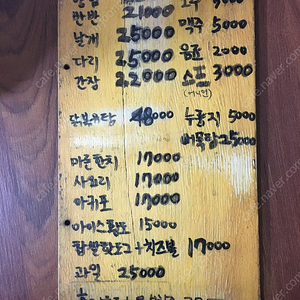 반반 21000
맥주 5000
날개 25000
음료 2000
다리 25000
소프 3000
간장 22000
닭볶음탕 48000
누룽지 5000
어묵탕 25000
마른한치 17000
사요리 17000
아귀포 17000
아이스황도 15000
찹쌀핫도그+치즈볼 17000
과일 25000